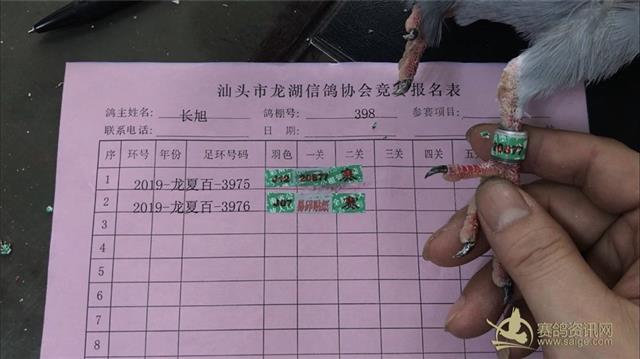 汕头市龙湖信鸽协会竞 报名表
鸽主姓名: 长旭 鸽棚号: 398 参赛项目:
联系电话: 日 期
序 环号 年份 足环号码 羽色 一关 二关 三关 四关 五
1 2019-龙夏百-3975 J12 20577
2 2019-龙夏百-3976 J07
3
4
5
6
7
8
赛鸽资讯网
www.saige.com